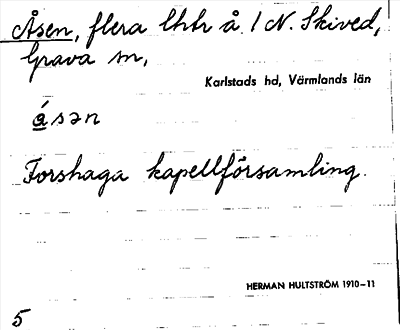 Åsen, flera lhtr å 1 N. Skived,
Grava sn,
Karlstads hd, Värmlands län
ásən
Forshaga kapellförsamling.
HERMAN HULTSTRÖM 1910–11
5